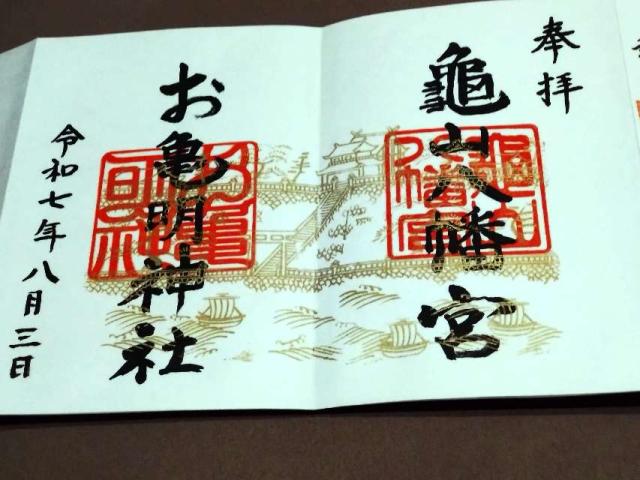 奉拝
龜山八幡宮
お亀明神社
令和七年八月三日